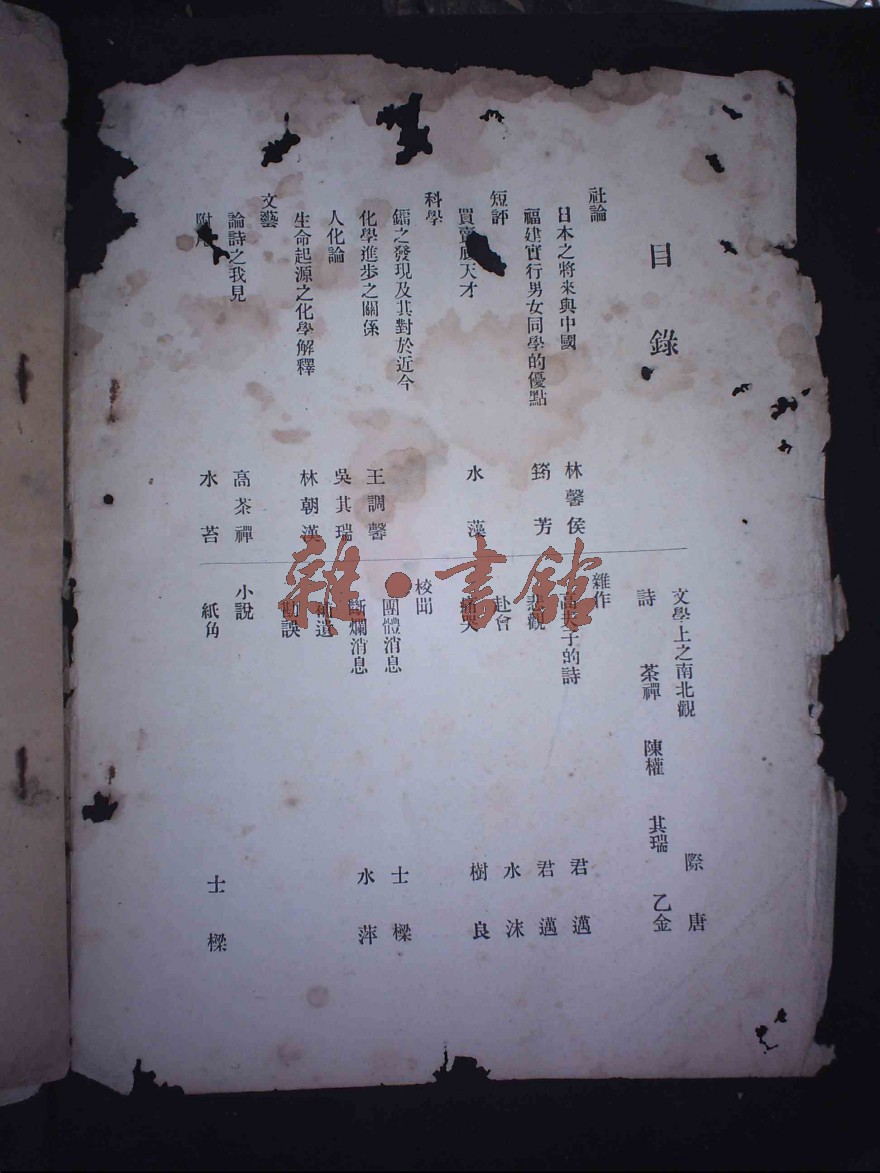 目錄
社論
日本之將來與中國 林馨侯
福建實行男女同學的優點 筠芳
短評
買賣 天才 水藻
科學
鐳之發現及其對於近今
化學進步之關係 王調馨
人化論 吳其瑞
生命起源之化學解釋 林朝漢
文藝
論詩之我見 高茶禪
附 水苔
文學上之南北觀 際唐
詩 茶禪 陳權 其瑞 乙金
雜作
子的詩 君邁
悲觀 君邁
赴會 水沫
痛哭 樹良
校聞
團體消息 士樑
斷爛消息 水萍
補遺
勘誤
小說
紙角 士樑
雜·書館